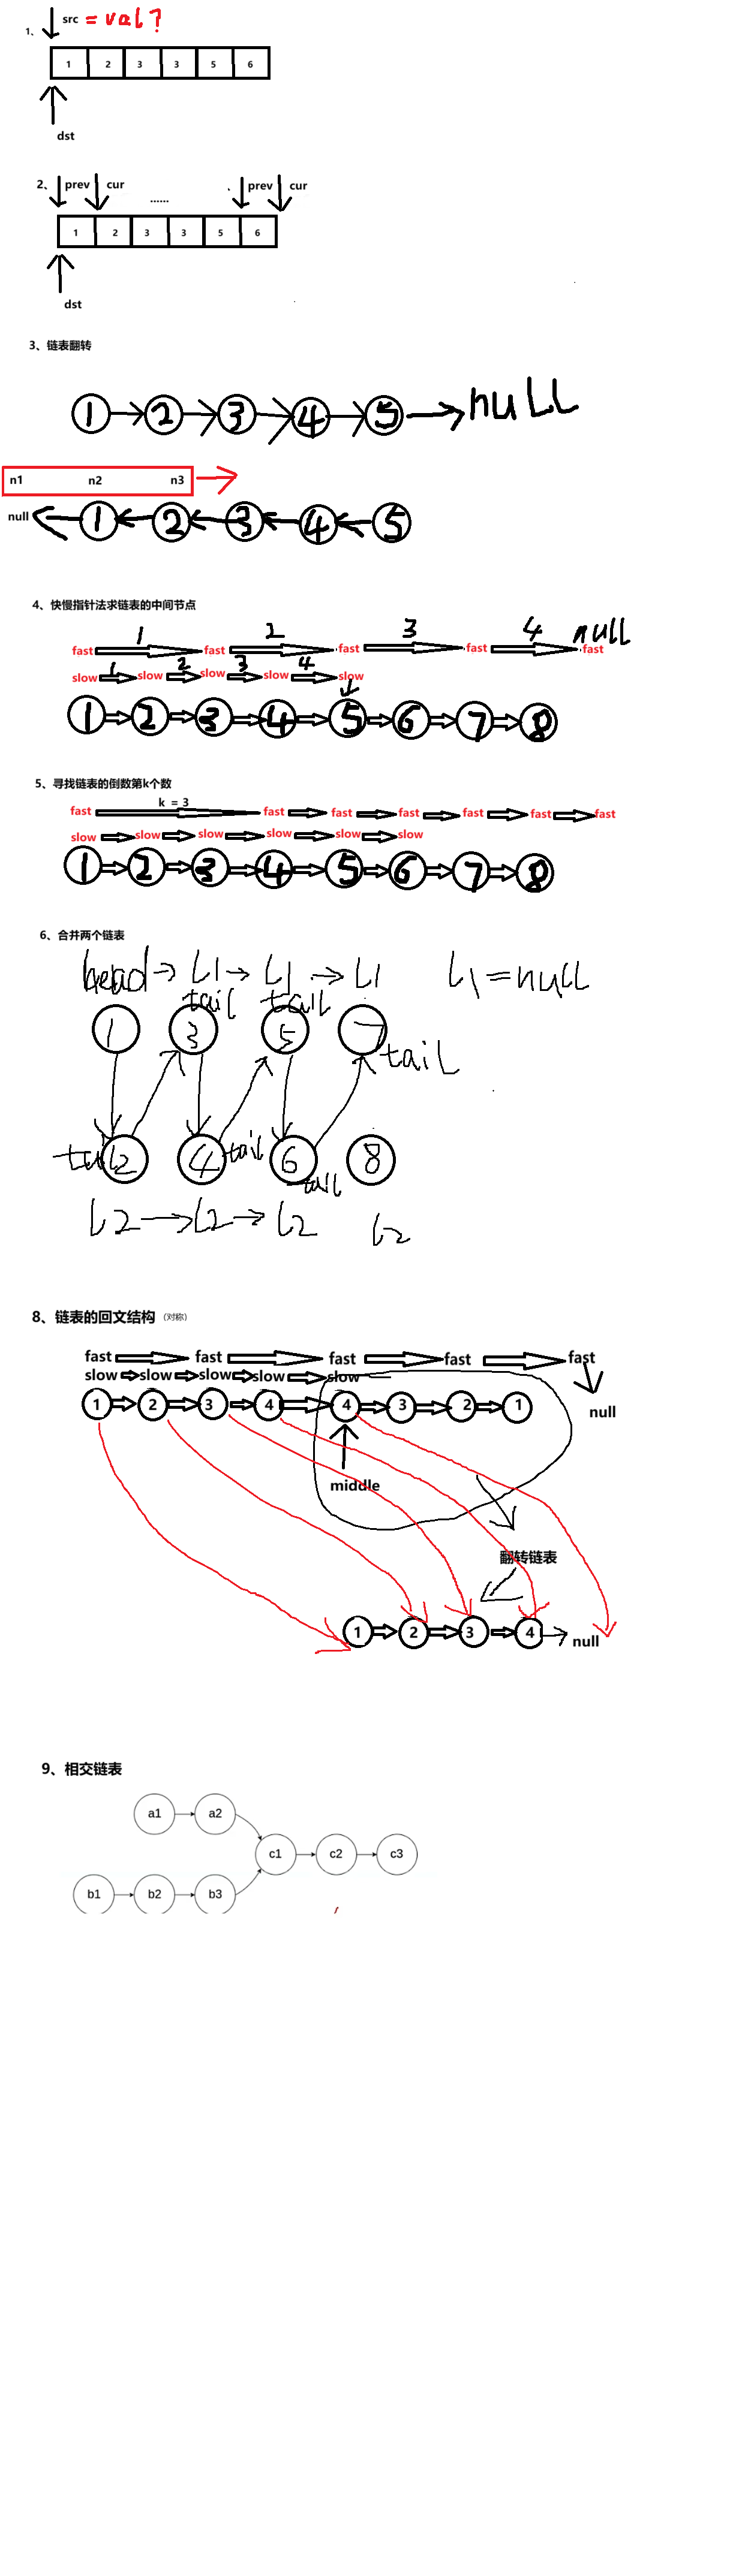 src = val?
1、
1 2 3 3 5 6
dst
2、 prev cur ...... prev cur
1 2 3 3 5 6
dst
3、链表翻转
1 2 3 4 5 null
n1 n2 n3
null 1 2 3 4 5
4、快慢指针法求链表的中间节点
1 2 3 4 null
fast fast fast fast fast
1 2 3 4
slow slow slow slow slow
1 2 3 4 5 6 7 8
5、寻找链表的倒数第k个数
k = 3
fast fast fast fast fast fast fast
slow slow slow slow slow slow
1 2 3 4 5 6 7 8
6、合并两个链表
head L1 L1 L1 L1=null
tail tail
1 3 5 7
tail
tail 2 4 tail 6 8
tail
L2 L2 L2 L2
8、链表的回文结构 (对称)
fast fast fast fast fast
slow slow slow slow slow
1 2 3 4 4 3 2 1
null
middle
翻转链表
1 2 3 4 null
9、相交链表
a1 a2
c1 c2 c3
b1 b2 b3